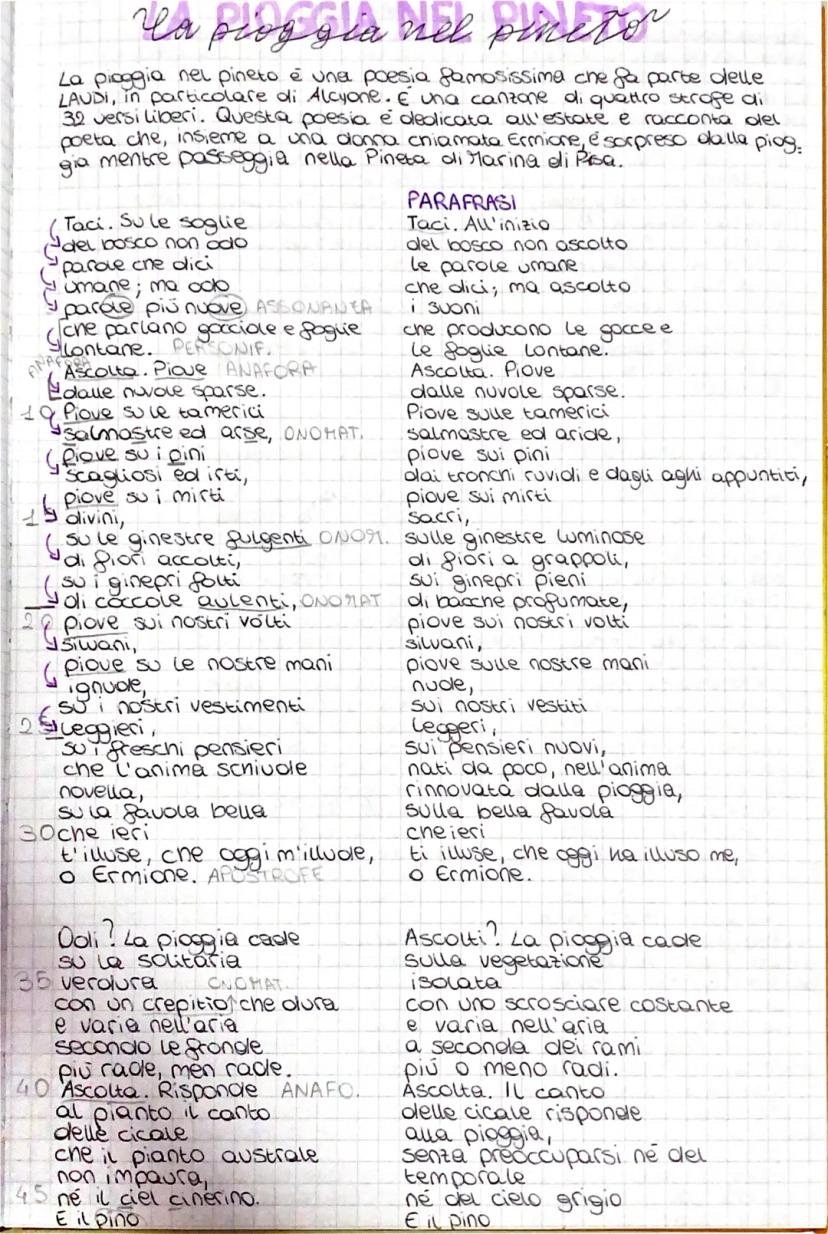 LA PIOGGIA NEL PINETO
La pioggia nel pineto
La pioggia nel pineto è una poesia famosissima che fa parte delle
LAUDI, in particolare di Alcyone. È una canzone di quattro strofe di
32 versi liberi. Questa poesia è dedicata all'estate e racconta del
poeta che, insieme a una donna chiamata Ermione, è sorpreso dalla piog-
gia mentre passeggia nella Pineta di Marina di Pisa.
Taci. Su le soglie
del bosco non odo
parole che dici
umane; ma odo
parole più nuove ASSONANZA
che parlano gocciole e foglie
lontane. PERSONIF.
ANAFORA Ascolta. Piove ANAFORA
dalle nuvole sparse.
10 Piove su le tamerici
salmastre ed arse, ONOMAT.
Piove su i pini
scagliosi ed irti,
piove su i mirti
15 divini,
su le ginestre fulgenti ONOM.
di fiori accolti,
su i ginepri folti
di coccole aulenti, ONOMAT
20 piove sui nostri volti
silvani,
piove su le nostre mani
ignude,
su i nostri vestimenti
25 leggieri,
su i freschi pensieri
che l'anima schiude
novella,
su la favola bella
30 che ieri
t'illuse, che oggi m'illude,
o Ermione. APOSTROFE
Odi? La pioggia cade
su la solitaria
35 verdura ONOMAT.
con un crepitio che dura
e varia nell'aria
secondo le fronde
più rade, men rade.
40 Ascolta. Risponde ANAFO.
al pianto il canto
delle cicale
che il pianto australe
non impaura,
45 né il ciel cinerino.
E il pino
PARAFRASI
Taci. All'inizio
del bosco non ascolto
le parole umane
che dici; ma ascolto
i suoni
che producono le gocce e
le foglie lontane.
Ascolta. Piove
dalle nuvole sparse.
Piove sulle tamerici
salmastre ed aride,
piove sui pini
dai tronchi ruvidi e dagli aghi appuntiti,
piove sui mirti
sacri,
sulle ginestre luminose
di fiori a grappoli,
sui ginepri pieni
di bacche profumate,
piove sui nostri volti
silvani,
piove sulle nostre mani
nude,
sui nostri vestiti
leggeri,
sui pensieri nuovi,
nati da poco, nell'anima
rinnovata dalla pioggia,
sulla bella favola
che ieri
ti illuse, che oggi ha illuso me,
o Ermione.
Ascolti? La pioggia cade
sulla vegetazione
isolata
con uno scrosciare costante
e varia nell'aria
a seconda dei rami
più o meno radi.
Ascolta. Il canto
delle cicale risponde
alla pioggia,
senza preoccuparsi né del
temporale
né del cielo grigio
E il pino